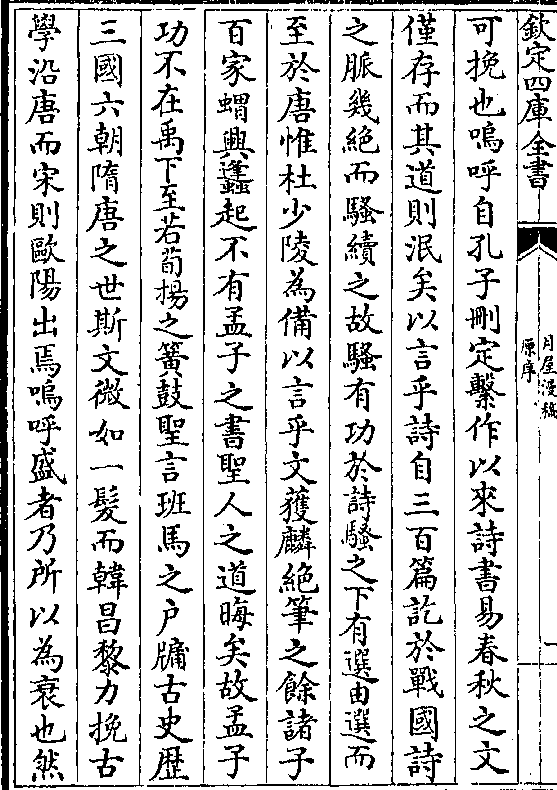 欽定四庫全書
月屋漫稿
原序
一
可挽也嗚呼自孔子刪定繫作以來詩書易春秋之文
僅存而其道則泯矣以言乎詩自三百篇訖於戰國詩
之脈幾絶而騷續之故騷有功於詩騷之下有選由選而
至於唐惟杜少陵為備以言乎文獲麟絶筆之餘諸子
百家蝟興蠭起不有孟子之書聖人之道晦矣故孟子
功不在禹下至若荀揚之簧鼓聖言班馬之户牖古史歴
三國六朝隋唐之世斯文微如一髮而韓昌黎力挽古
學沿唐而宋則歐陽出焉嗚呼盛者乃所以為衰也然